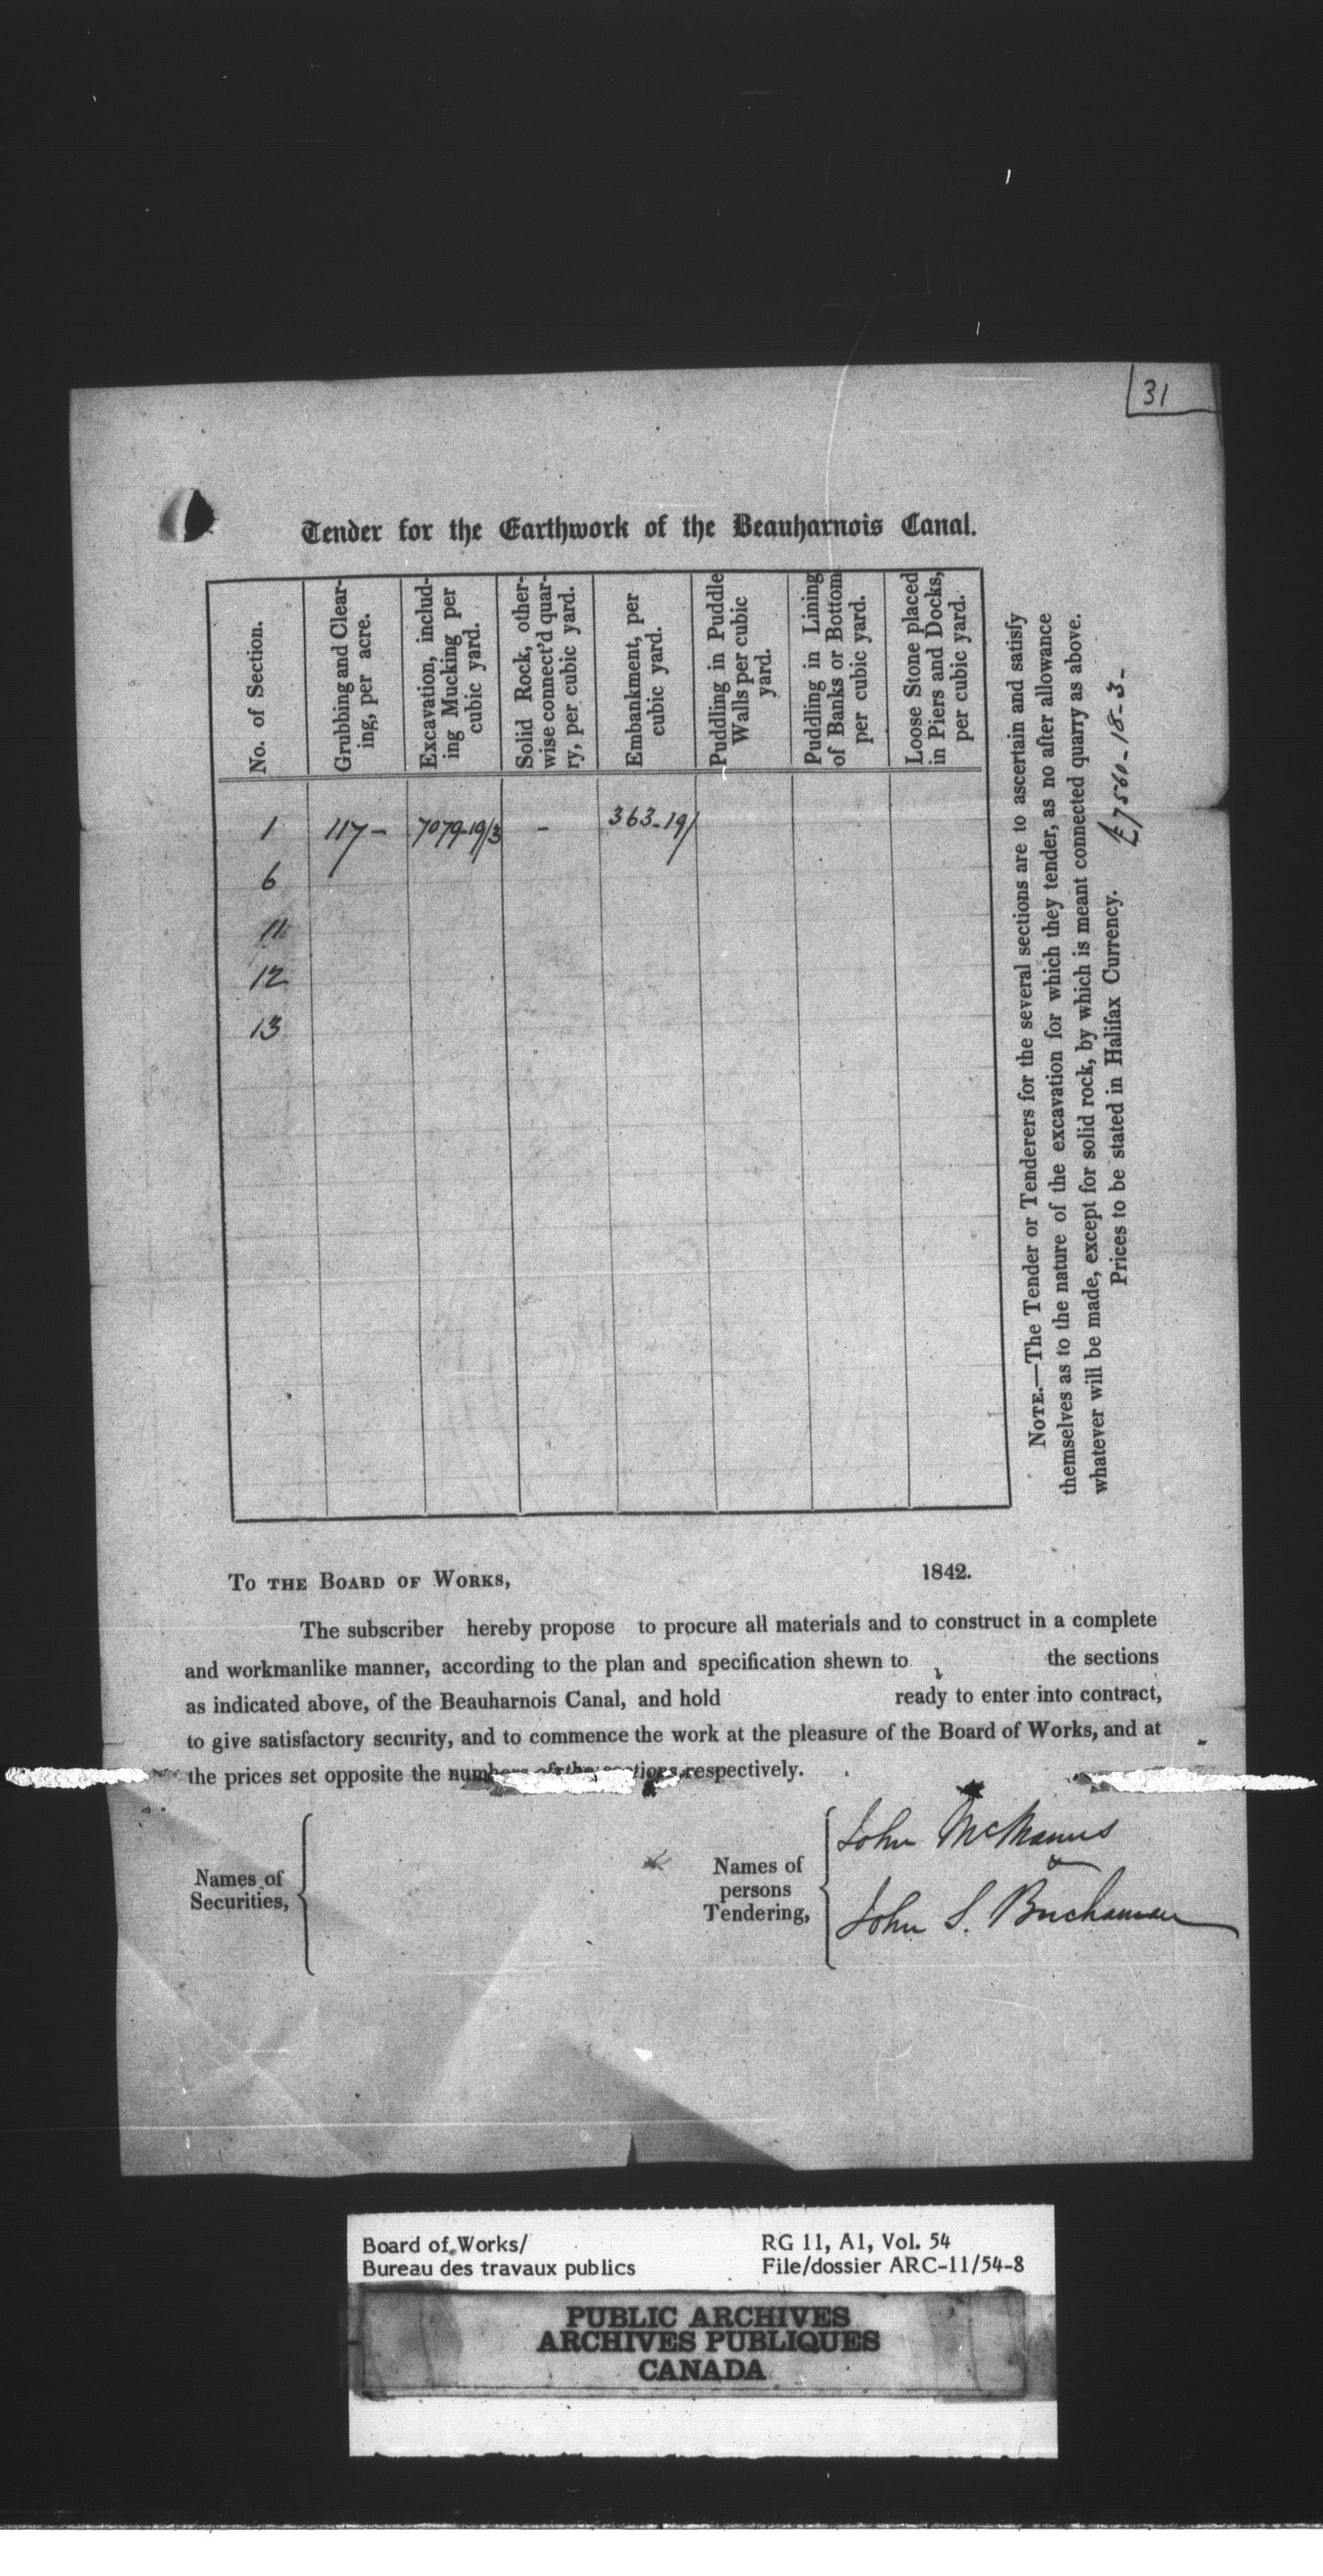 31
Tender for the Earthwork of the Beauharnois Canal.
No. of Section.
Grubbing and Clear-
ing, per acre.
Excavation, includ-
ing Mucking per
cubic yard.
Solid Rock, other-
wise connect'd quar-
ry, per cubic yard.
Embankment, per
cubic yard.
Puddling in Puddle
Walls per cubic
yard.
Puddling in Lining
of Banks or Bottom
per cubic yard.
Loose Stone placed
in Piers and Docks,
per cubic yard.
1 117 - 7079-19/3 - 363-19/
6
11
12
13
NOTE.—The Tender or Tenderers for the several sections are to ascertain and satisfy
themselves as to the nature of the excavation for which they tender, as no after allowance
whatever will be made, except for solid rock, by which is meant connected quarry as above.
Prices to be stated in Halifax Currency. £7560-18-3-
TO THE BOARD OF WORKS, 1842.
The subscriber hereby propose to procure all materials and to construct in a complete
and workmanlike manner, according to the plan and specification shewn to the sections
as indicated above, of the Beauharnois Canal, and hold ready to enter into contract,
to give satisfactory security, and to commence the work at the pleasure of the Board of Works, and at
the prices set opposite the numbers of the sections respectively.
Names of
Securities,
Names of
persons
Tendering,
John McManus
John S. Buchanan
Board of Works/
Bureau des travaux publics
RG 11, A1, Vol. 54
File/dossier ARC-11/54-8
PUBLIC ARCHIVES
ARCHIVES PUBLIQUES
CANADA